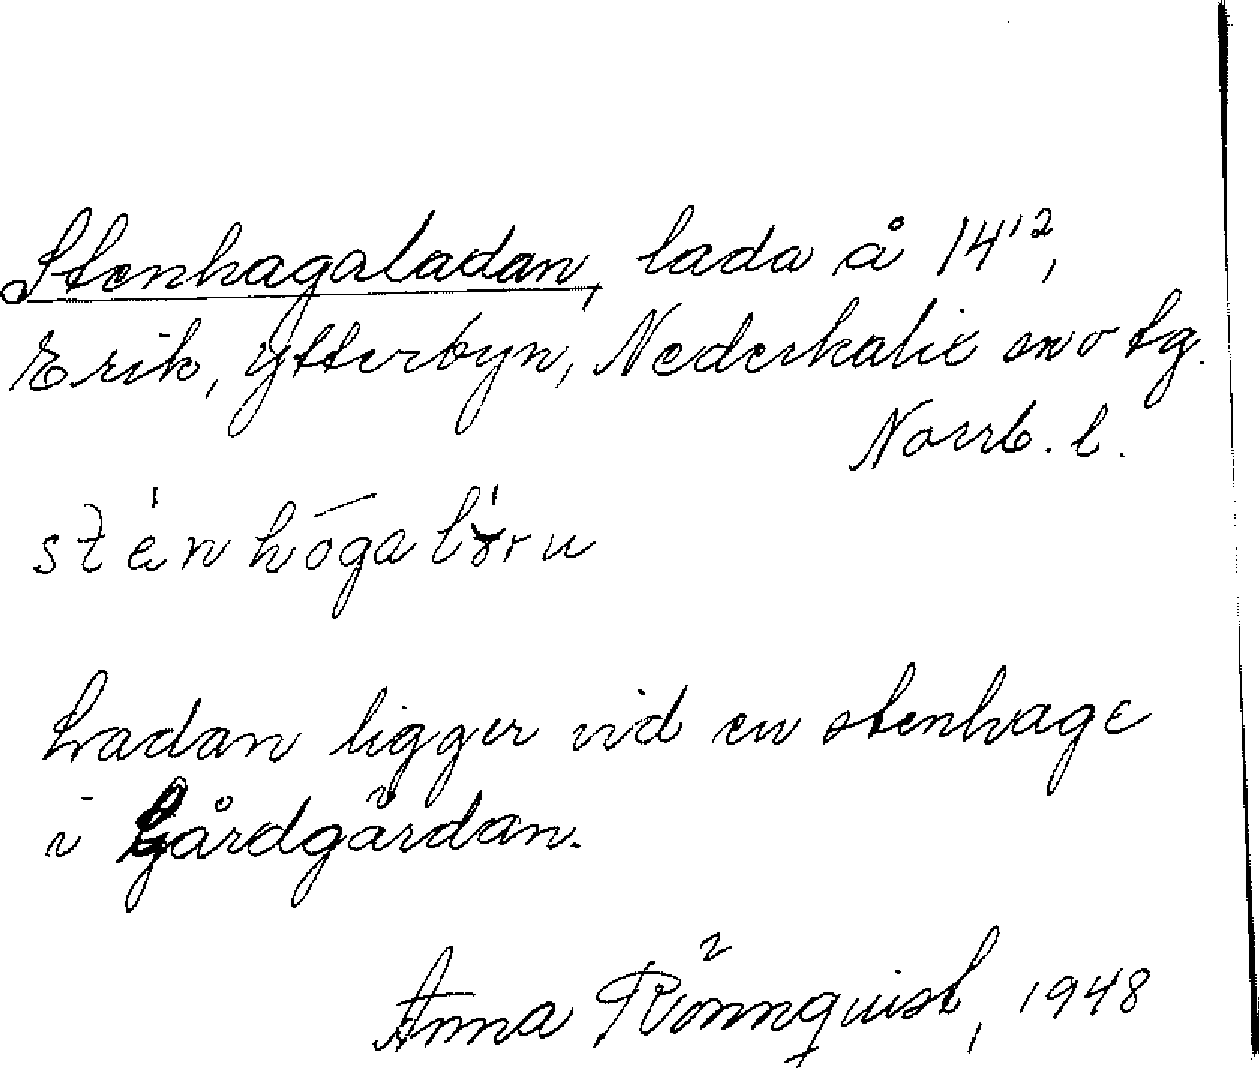 Stenhagaladan, lada å 14¹²,
Erik, Ytterbyn, Nederkalix sn o tg.
Norrb. l.
sténhōgalǻru
Ladan ligger vid en stenhage
i Gårdgärdan.
Anna Rönnquist, 1948